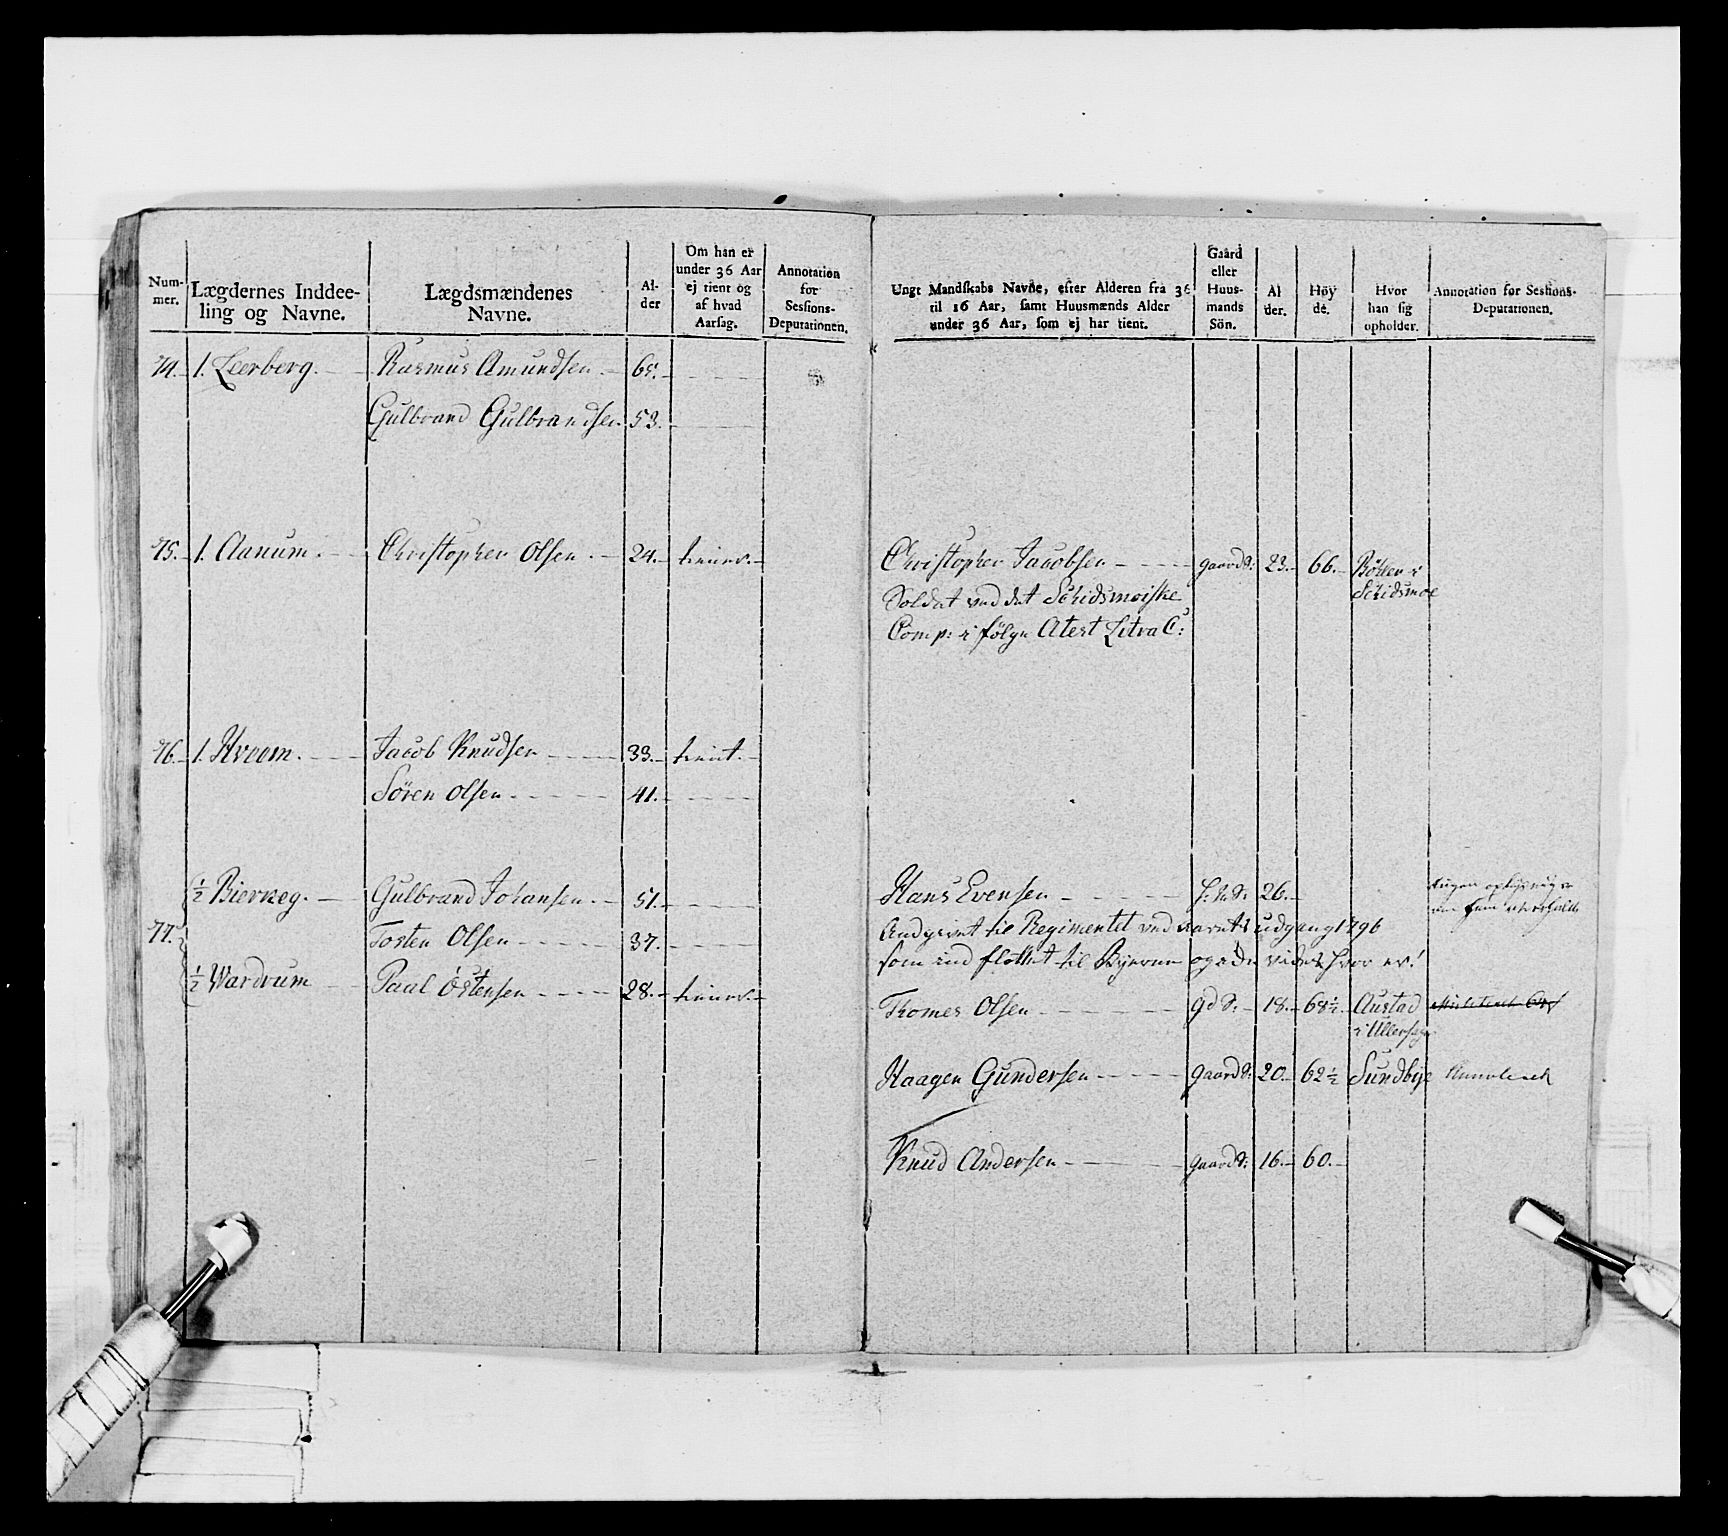 Num-
mer.
Lægdernes Inddee-
ling og Navne.
Lægdsmændenes
Navne.
Al-
der
Om han er
under 36 Aar
ej tient og
af hvad
Aarsag.
Annotation
for
Sessions-
Deputationen.
74. 1. Leerberg. Rasmus Amundsen 65.
Gulbrand Gulbrandsen 53.
75. 1. Aanum. Christopher Olsen 24. tiener.
76. 1. Hvoom. Jacob Knudsen 33. tient.
Sören Olsen 41.
77. ½ Bierkeg. Gulbrand Johansen 51.
Tosten Olsen 37.
½ Wardrum Paal Östensen 28. tiener.
Ungt Mandskabs Navne, efter Alderen fra 36
til 16 Aar, samt Huusmænds Alder
under 36 Aar, som ej har tient.
Gaard
eller
Huus-
mands
Sön.
Al
der.
Höy
de.
Hvor
han sig
opholder.
Annotation for Sessions-
Deputationen.
Christopher Jacobsen gaard S: 23. 66. Böller i
Skidsmoe
Soldat ved det Skidsmoiske
Comp: i fölge Atest Litra C:
Hans Evensen H: S: 26.
Angivet til Regimentet ved aarets udgang 1796
som ind flöttet til Byerne og ede vides hvor er!
Thomes Olsen gd S: 18. 68½ Austad
i Ullersager
Haagen Gundersen gaard S: 20. 62½ Sundbye
Knud Andersen gaard S: 16. 60.